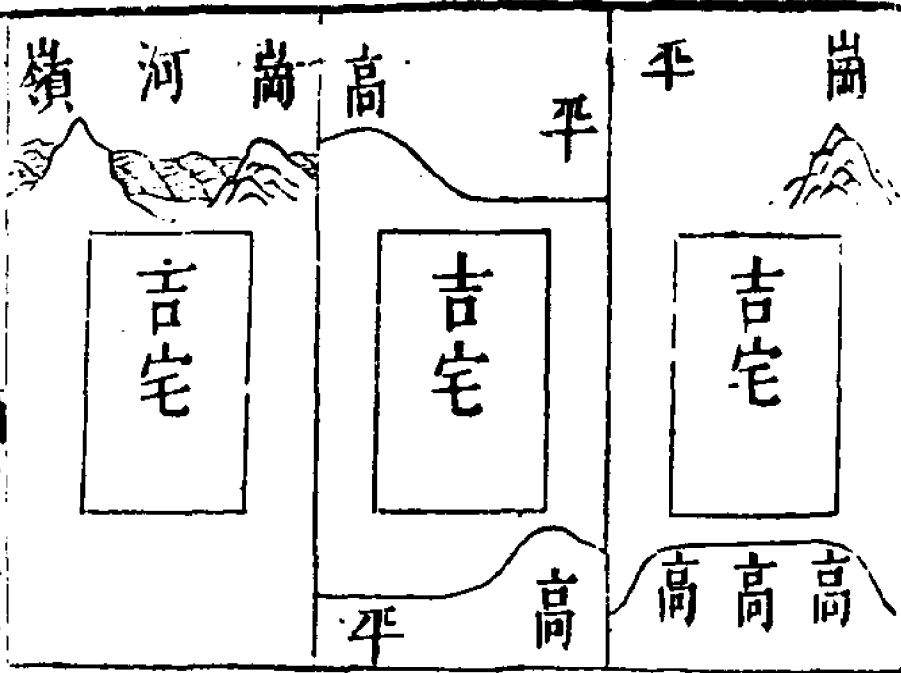 崗
平
吉宅
高 高 高
平
高
吉宅
高
平
崗 河 嶺
吉宅